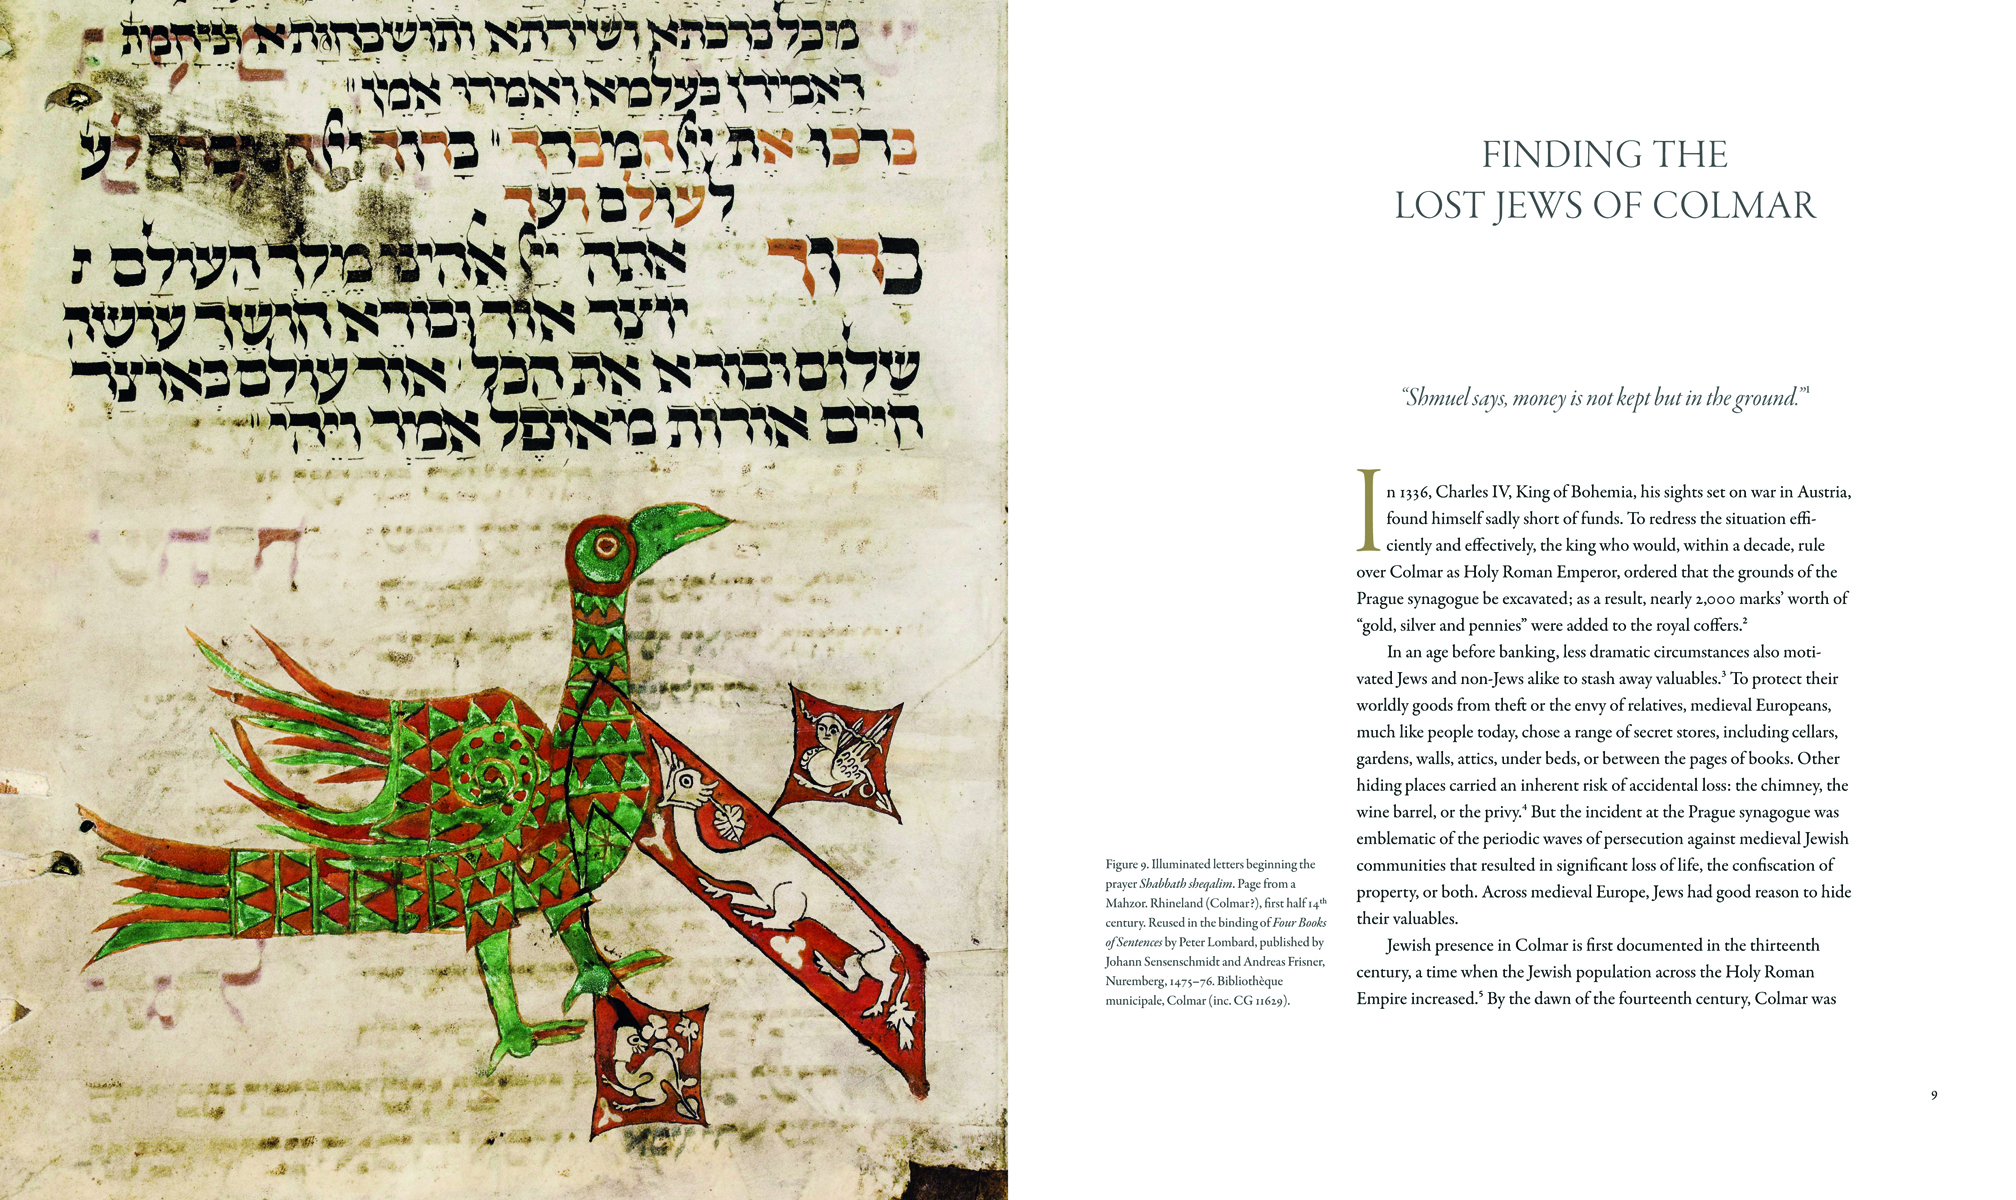 מכל ברכתא ושירתא ותושבחותא וניחמת
דאמירן בעלמא ואמרו אמן
ברכו את יי המברך ברוך יי המבורך לע
לעולם ועד
ברוך אתה יי אלהינו מלך העולם
יוצר אור ובורא חושך עושה
שלום ובורא את הכל אור עולם באוצר
חיים אורות מאופל אמר ויהי
FINDING THE
LOST JEWS OF COLMAR
“Shmuel says, money is not kept but in the ground.”¹
In 1336, Charles IV, King of Bohemia, his sights set on war in Austria,
found himself sadly short of funds. To redress the situation effi-
ciently and effectively, the king who would, within a decade, rule
over Colmar as Holy Roman Emperor, ordered that the grounds of the
Prague synagogue be excavated; as a result, nearly 2,000 marks’ worth of
“gold, silver and pennies” were added to the royal coffers.²
In an age before banking, less dramatic circumstances also moti-
vated Jews and non-Jews alike to stash away valuables.³ To protect their
worldly goods from theft or the envy of relatives, medieval Europeans,
much like people today, chose a range of secret stores, including cellars,
gardens, walls, attics, under beds, or between the pages of books. Other
hiding places carried an inherent risk of accidental loss: the chimney, the
wine barrel, or the privy.⁴ But the incident at the Prague synagogue was
emblematic of the periodic waves of persecution against medieval Jewish
communities that resulted in significant loss of life, the confiscation of
property, or both. Across medieval Europe, Jews had good reason to hide
their valuables.
Jewish presence in Colmar is first documented in the thirteenth
century, a time when the Jewish population across the Holy Roman
Empire increased.⁵ By the dawn of the fourteenth century, Colmar was
Figure 9. Illuminated letters beginning the
prayer Shabbath sheqalim. Page from a
Mahzor. Rhineland (Colmar?), first half 14th
century. Reused in the binding of Four Books
of Sentences by Peter Lombard, published by
Johann Sensenschmidt and Andreas Frisner,
Nuremberg, 1475–76. Bibliothèque
municipale, Colmar (inc. CG 11629).
9